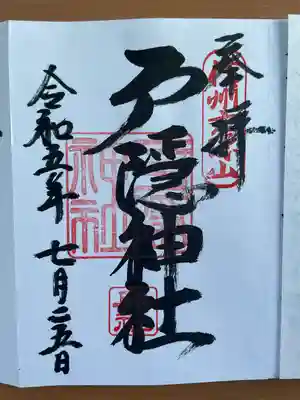 奉拝
戸隠神社
令和五年 七月二五日